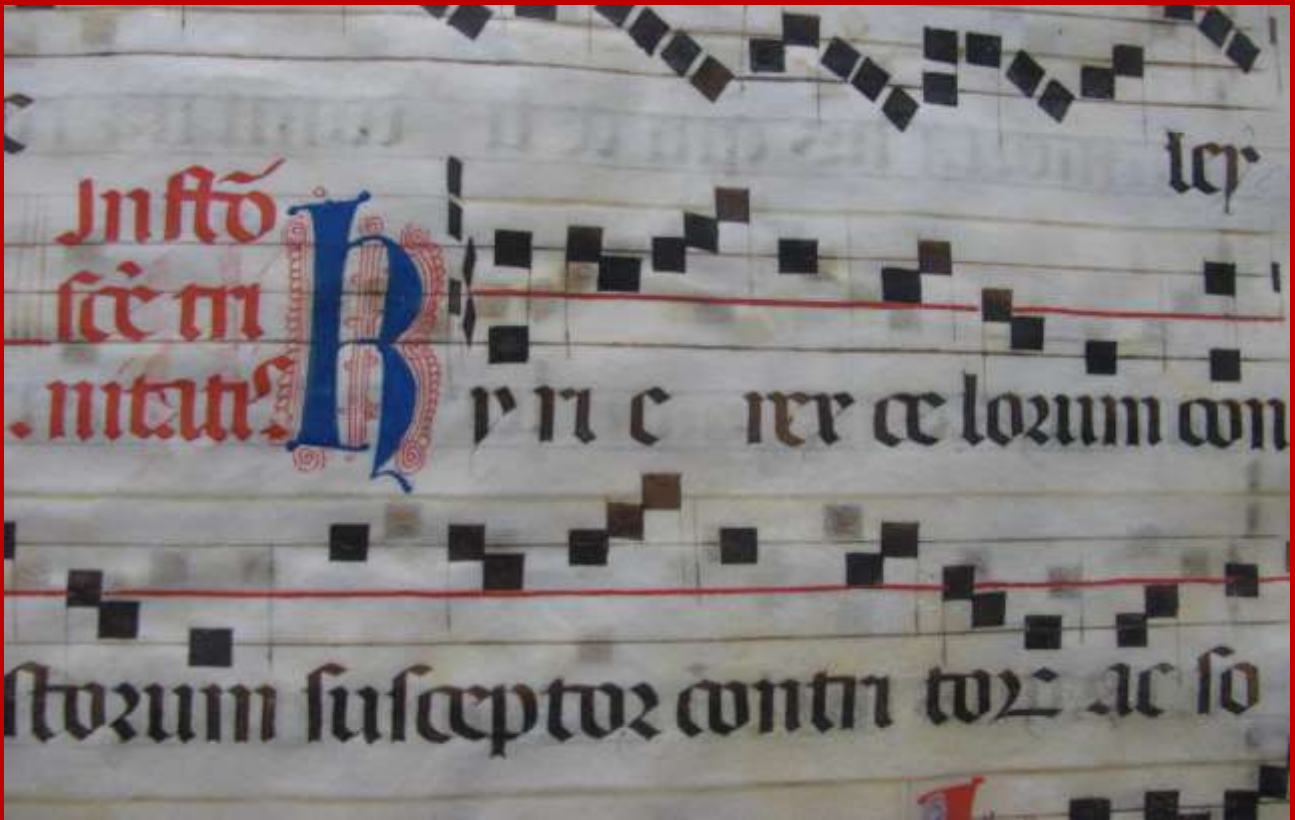 ley
In festo
sce tri
nitatis
Kyrie rex celorum con
storum susceptor contri tor ac so